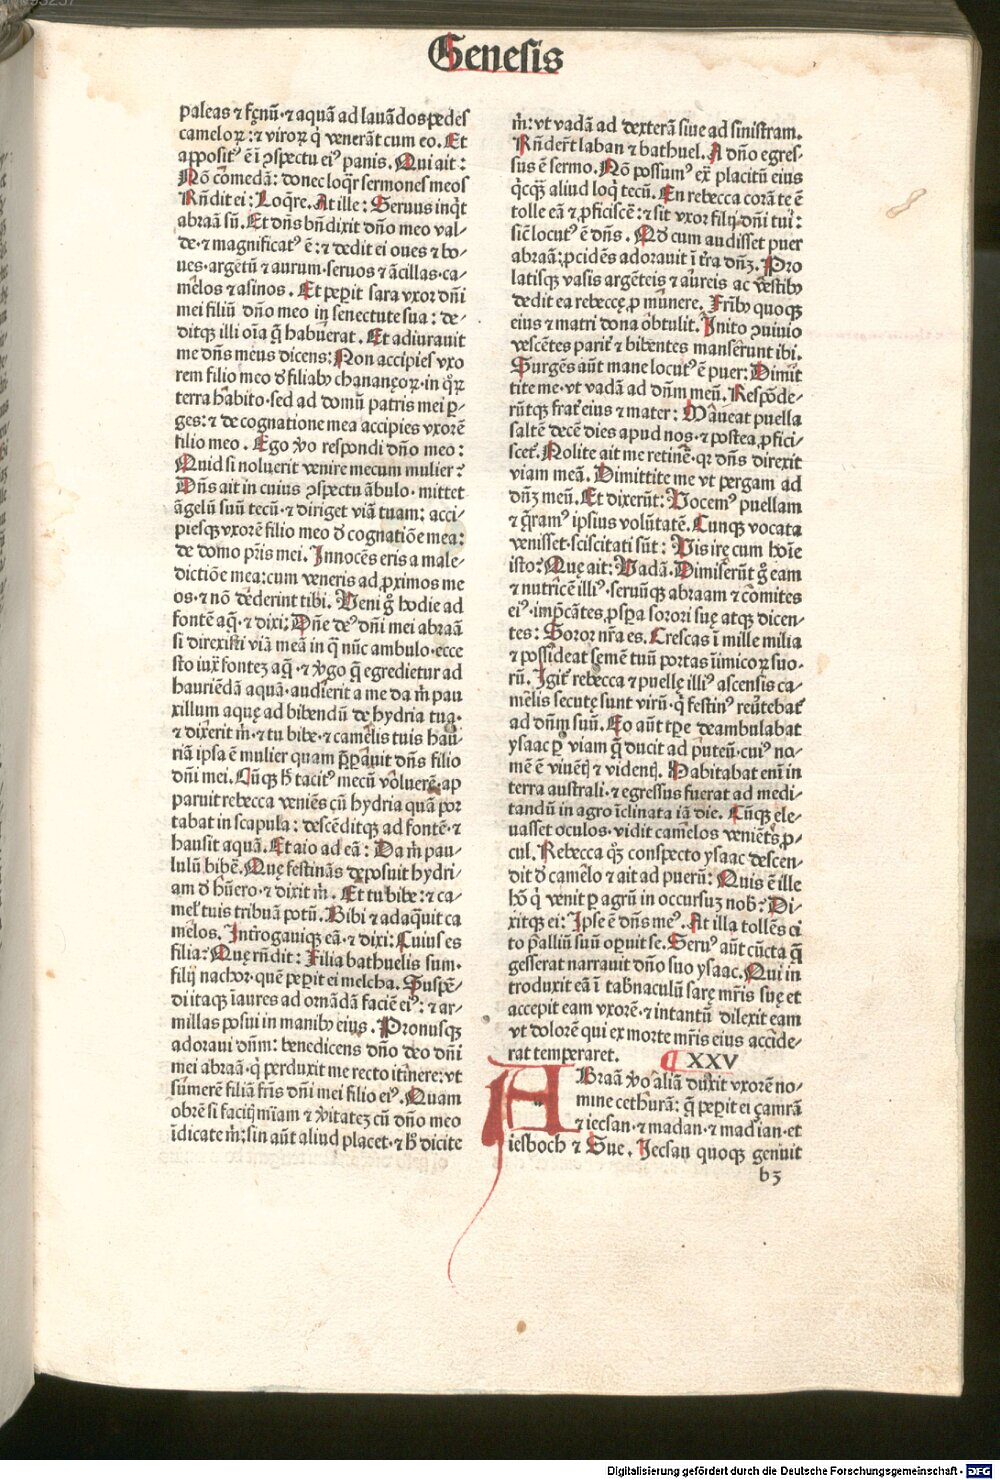 Genesis
paleas ⁊ fęnū·⁊ aquā ad lauādos pedes
cameloꝝ:⁊ viroꝝ q̇ venerāt cum eo. Et
apposit⁹ ē ī ꝯspectu ei⁹ panis. Qui ait:
Nō comedā: donec loq̄r sermones meos
Rn̄dit ei: Loq̄re. At ille: Seruus inq̇t
abraā sū. Et dn̄s bn̄dixit dn̄o meo val-
de·⁊ magnificat⁹ ē: ⁊ dedit ei oues ⁊ bo-
ues·argētū ⁊ aurum·seruos ⁊ ācillas·ca-
melos ⁊ asinos. Et peꝑit sara vxor dn̄i
mei filiū dn̄o meo in senectute sua: de-
ditqꝫ illi oīa q̄ habuerat. Et adiurauit
me dn̄s meus dicens: Non accipies vxo
rem filio meo d̓ filiabꝰ chananęoꝝ·in qͦꝝ
terra habito·sed ad domū patris mei ꝑ-
ges: ⁊ de cognatione mea accipies vxorē
filio meo. Ego v̓o respondi dn̄o meo:
Quid si noluerit venire mecum mulier?
Dn̄s ait in cuius ꝯspectu ābulo· mittet
āgelū suū tecū·⁊ diriget viā tuam: acci-
piesqꝫ vxorē filio meo d̓ cognatiōe mea:
de domo pr̄is mei. Innocēs eris a male-
dictiōe mea:cum veneris ad ꝓximos me
os·⁊ nō dederint tibi. Veni g̊ hodie ad
fontē aq̄·⁊ dixi: Dn̄e de⁹ dn̄i mei abraā
si direxisti viā meā in q̄ nūc ambulo·ecce
sto iux̄ fontez aq̄·⁊ v̓go q̄ egredietur ad
hauriēdā aquā·audierit a me da m̓ pau
xillum aquę ad bibendū de hydria tua·
⁊ dixerit m̓·⁊ tu bibe·⁊ camelis tuis hau-
riā ipsa ē mulier quam p̄ꝑauit dn̄s filio
dn̄i mei. Cūqꝫ h̓ tacit⁹ mecū voluerē·ap
paruit rebecca veniēs cū hydria quā por
tabat in scapula: descēditqꝫ ad fontē·⁊
hausit aquā. Et aio ad eā: Da m̓ pau-
lulū bibē. Que festinās deposuit hydri-
am d̓ hūero·⁊ dixit m̓. Et tu bibe:⁊ ca-
mel̓ tuis tribuā potū. Bibi ⁊ adaq̄uit ca
melos. Introgauiqꝫ eā·⁊ dixi: Cuius es
filia? Quę rn̄dit: Filia bathuelis sum·
filij nachor·quē peꝑit ei melcha. Suspē-
di itaqꝫ īaures ad ornādā faciē ei⁹: ⁊ ar-
millas posui in manibꝰ eius. Pronusqꝫ
adoraui dn̄m: benedicens dn̄o deo dn̄i
mei abraā·q̇ perduxit me recto itinere:vt
sumerē filiā fr̄is dn̄i mei filio ei⁹. Quam
obrē si facitꝭ mīam ⁊ v̓itatez cū dn̄o meo
īdicate m̓:sin aūt aliud placet·⁊ h̓ dicite
m̓: vt vadā ad dexterā siue ad sinistram.
Rn̄dert̄ laban ⁊ bathuel. A dn̄o egres-
sus ē sermo. Nō possum⁹ ex̄ placitū eius
q̇cq̄ꝫ aliud loq̇ tecū. En rebecca corā te ē
tolle eā ⁊ ꝓficiscē:⁊ sit vxor filij dn̄i tui:
sic̄ locut⁹ ē dn̄s. Qd̓ cum audisset puer
abraā:ꝓcidēs adorauit ī tr̄a dn̄ꝫ. Pro
latisqꝫ vasis argēteis ⁊ aureis ac vestibꝰ
dedit ea rebeccę ꝓ munere. Fr̄ibꝰ quoqꝫ
eius ⁊ matri dona obtulit. Inito ꝯuiuio
vescētes parit̄ ⁊ bibentes manserunt ibi.
Surgēs aūt mane locut⁹ ē puer: Dimit
tite me·vt vadā ad dn̄m meū. Respōde-
rūtqꝫ frat̄ eius ⁊ mater: Maneat puella
saltē decē dies apud nos·⁊ postea ꝓfici-
scet̄. Nolite ait me retinē·qꝛ dn̄s direxit
viam meā. Dimittite me vt pergam ad
dn̄ꝫ meū. Et dixerūt: Vocem⁹ puellam
⁊ q̄ram⁹ ipsius volūtatē. Cunqꝫ vocata
venisset·sciscitati sūt: Vis ire cum hoīe
isto? Quę ait: Vadā. Dimiserūt g̊ eam
⁊ nutricē illi⁹·seruūqꝫ abraam ⁊ comites
ei⁹·imp̄cātes ꝓspa sorori suę atqꝫ dicen-
tes: Soror nr̄a es. Crescas ī mille milia
⁊ possideat semē tuū portas inimicoꝝ suo-
rū. Igit̄ rebecca ⁊ puellę illi⁹ ascensis ca-
melis secutę sunt virū·q̇ festin⁹ reūtebat̄
ad dn̄m suū. Eo aūt tꝑe deambulabat
ysaac ꝑ viam q̄ ducit ad puteū·cui⁹ no-
mē ē viuētꝭ ⁊ videntꝭ. Habitabat enī in
terra australi·⁊ egressus fuerat ad medi-
tandū in agro īclinata iā die. Cūqꝫ ele-
uasset oculos·vidit camelos veniētꝭ ꝓ-
cul. Rebecca qͦꝫ conspecto ysaac descen-
dit d̓ camelo ⁊ ait ad puerū: Quis ē ille
hō q̇ venit ꝑ agrū in occursuꝫ nob̓? Di-
xitqꝫ ei: Ipse ē dn̄s me⁹. At illa tollēs ci
to palliū suū oꝑuit se. Seru⁹ aūt cūcta q̄
gesserat narrauit dn̄o suo ysaac. Qui in
troduxit eā ī tabn̄aculū sarę mr̄is suę et
accepit eam vxorē·⁊ intantū dilexit eam
vt dolorē qui ex morte mr̄is eius accide-
rat temperaret. ¶ XXV
ABraā v̓o aliā duxit vxorē no-
mine cethurā: q̄ peꝑit ei çamrā
⁊ iecsan·⁊ madan·⁊ madian·et
iesboch ⁊ Sue. Jecsan quoqꝫ genuit
b3
Digitalisierung gefördert durch die Deutsche Forschungsgemeinschaft - DFG